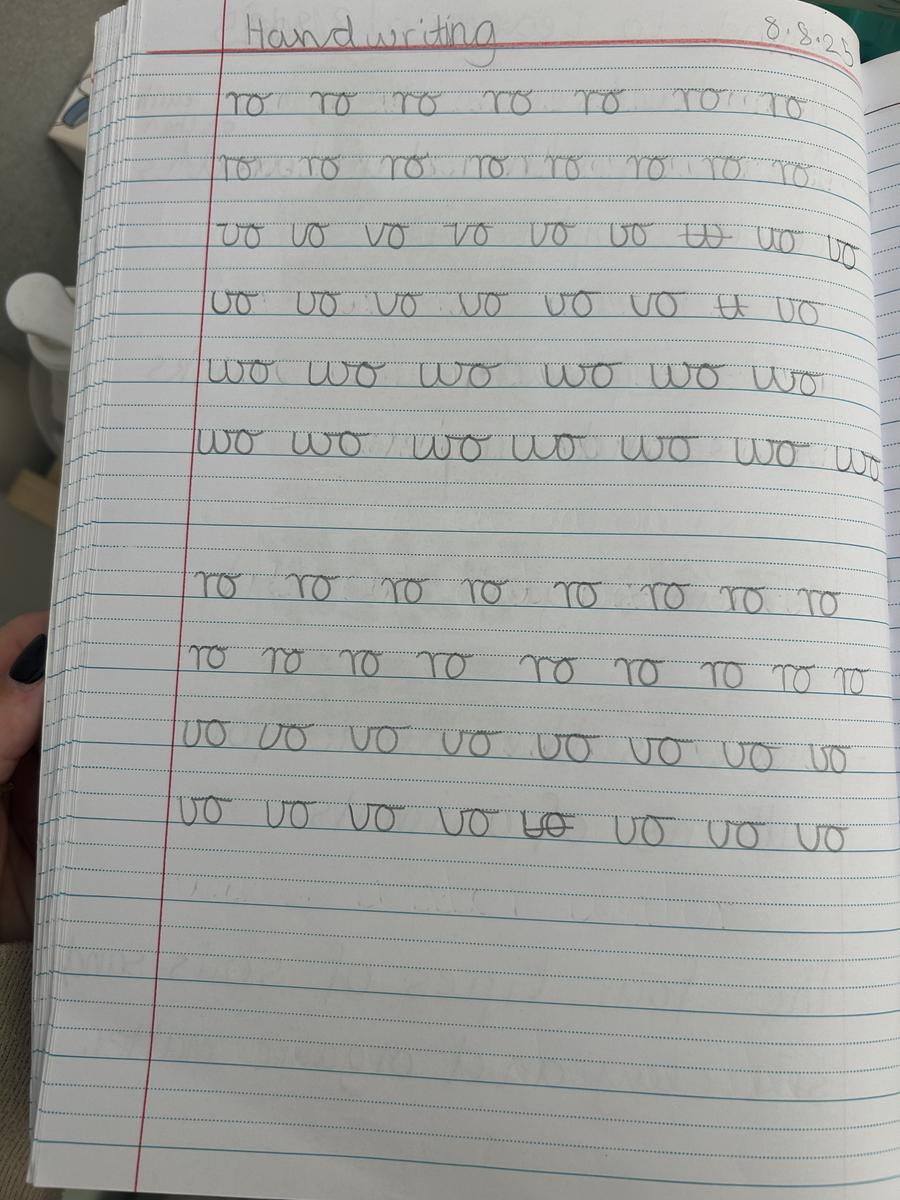 Handwriting 8.8.25
ro ro ro ro ro ro ro
ro ro ro ro ro ro ro ro
vo vo vo vo vo vo vo vo
vo vo vo vo vo vo vo
wo wo wo wo wo wo
wo wo wo wo wo wo wo
ro ro ro ro ro ro ro ro
ro ro ro ro ro ro ro ro ro
vo vo vo vo vo vo vo vo
vo vo vo vo vo vo vo